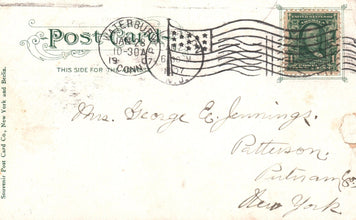 Post Card
WATERBURY
10-30A
19 07
CONN.
THIS SIDE FOR THE
Souvenir Post Card Co., New York and Berlin.
Mrs. George E. Jennings,
Patterson,
Putnam Co
New York